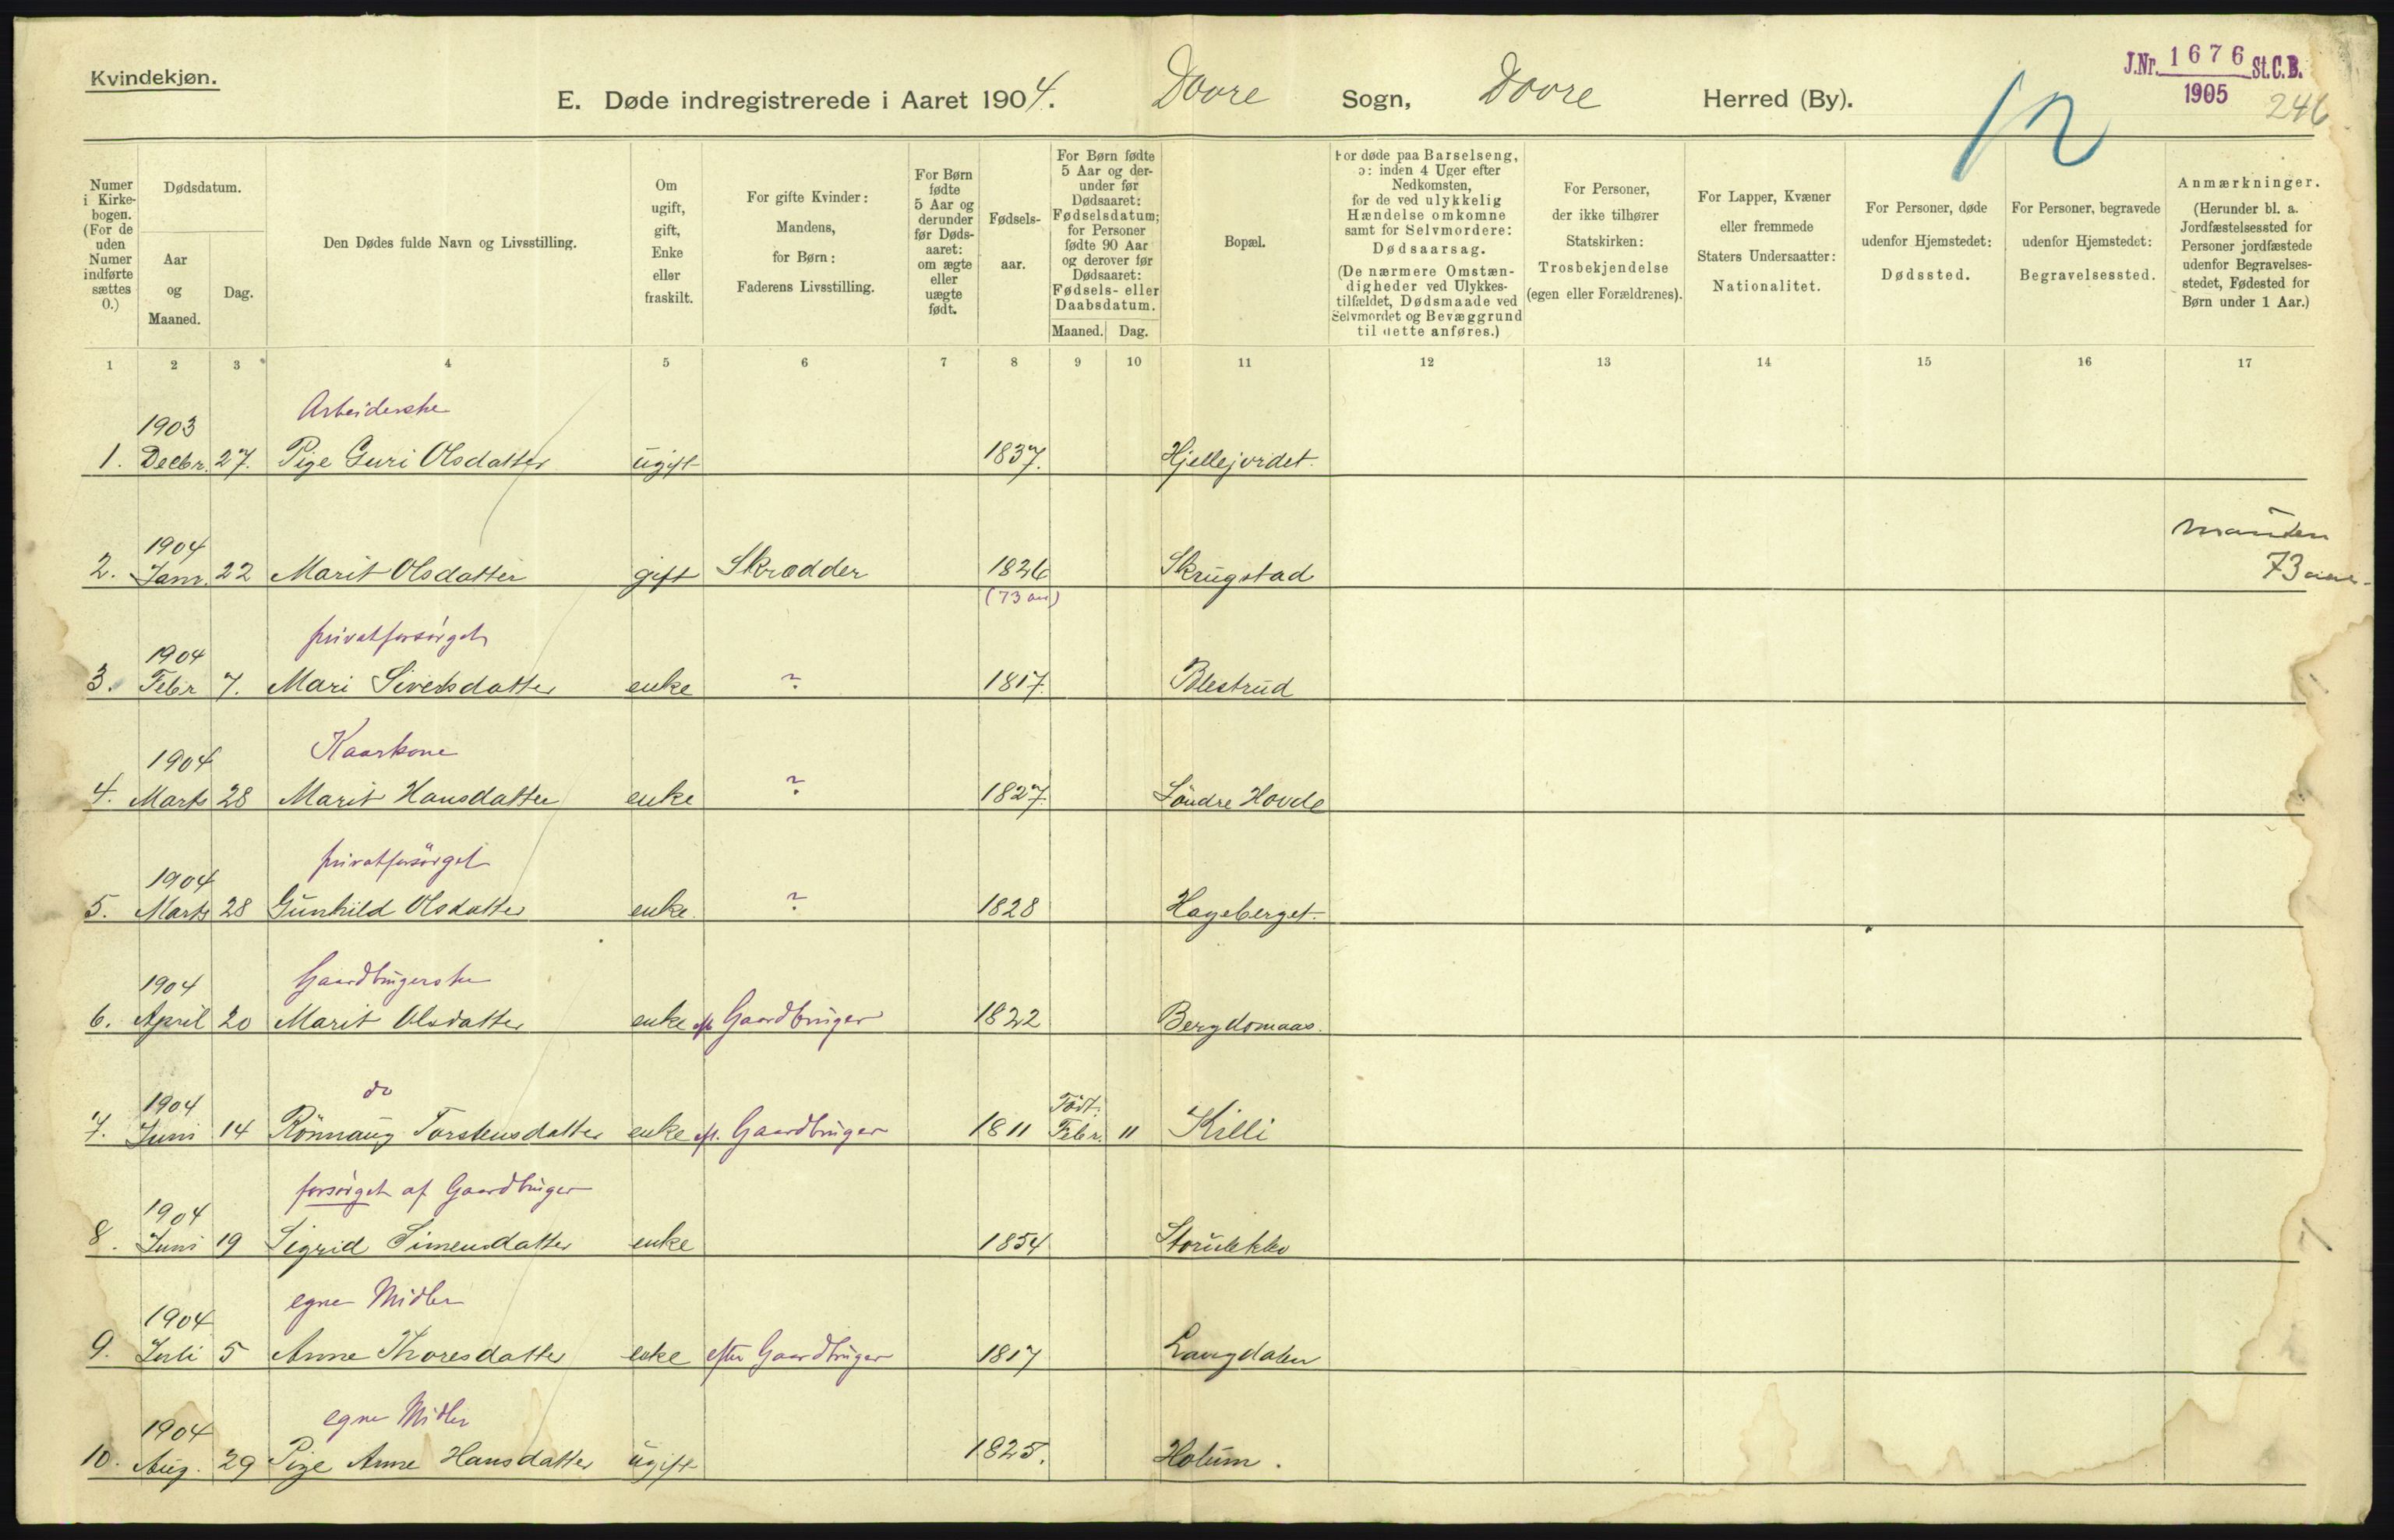 Kvindekjøn.
J.Nr. 1676 St.C.B.
1905
246
E. Døde indregistrerede i Aaret 1904. Dovre Sogn, Dovre Herred (By).
Numer i Kirkebogen. (For de uden Numer indførte sættes 0.)
Dødsdatum.
Aar og Maaned.
Dag.
Den Dødes fulde Navn og Livsstilling.
Om ugift, gift, Enke eller fraskilt.
For gifte Kvinder: Mandens, for Børn: Faderens Livsstilling.
For Børn fødte 5 Aar og derunder før Dødsaaret: om ægte eller uægte født.
Fødselsaar.
For Børn fødte 5 Aar og derunder før Dødsaaret: Fødselsdatum; for Personer fødte 90 Aar og derover før Dødsaaret: Fødsels- eller Daabsdatum.
Maaned. Dag.
Bopæl.
For døde paa Barselseng, ɔ: inden 4 Uger efter Nedkomsten, for de ved ulykkelig Hændelse omkomne samt for Selvmordere: Dødsaarsag. (De nærmere Omstændigheder ved Ulykkestilfældet, Dødsmaade ved Selvmordet og Bevæggrund til dette anføres.)
For Personer, der ikke tilhører Statskirken: Trosbekjendelse (egen eller Forældrenes).
For Lapper, Kvæner eller fremmede Staters Undersaatter: Nationalitet.
For Personer, døde udenfor Hjemstedet: Dødssted.
For Personer, begravede udenfor Hjemstedet: Begravelsessted.
Anmærkninger. (Herunder bl. a. Jordfæstelsessted for Personer jordfæstede udenfor Begravelsesstedet, Fødested for Børn under 1 Aar.)
1 2 3 4 5 6 7 8 9 10 11 12 13 14 15 16 17
1903 Arbeiderske
1. Decbr. 27. Pige Guri Olsdatter ugift 1837. Hjellejordet.
1904 manden
2. Janr. 22 Marit Olsdatter gift Skrædder 1826 Skrugstad 73 aar
(73 aar)
1904 privatforsørget
3. Febr 7. Mari Sivertsdatter enke ? 1817. Blestrud
1904 Kaarkone
4. Marts 28 Marit Hansdatter enke ? 1827. Søndre Hovde
1904 privatforsørget
5. Marts 28 Gunhild Olsdatter enke ? 1828 Hageberget.
1904 Gaardbrugerske
6. April 20 Marit Olsdatter enke eft Gaardbruger 1822 Bergdomaas.
1904 do Født.
7. Juni 14 Rönnaug Torstensdatter enke eft. Gaardbruger 1811 Febr. 11 Killi
1904 forsørget af Gaardbruger
8. Juni 19 Sigrid Simensdatter enke 1854
1904 egne Midler
9. Juli 5 Anne Thoresdatter enke efter Gaardbruger 1817 Langdalen
1904 egne Midler
10. Aug. 29 Pige Anne Hansdatter ugift 1825. Holum.